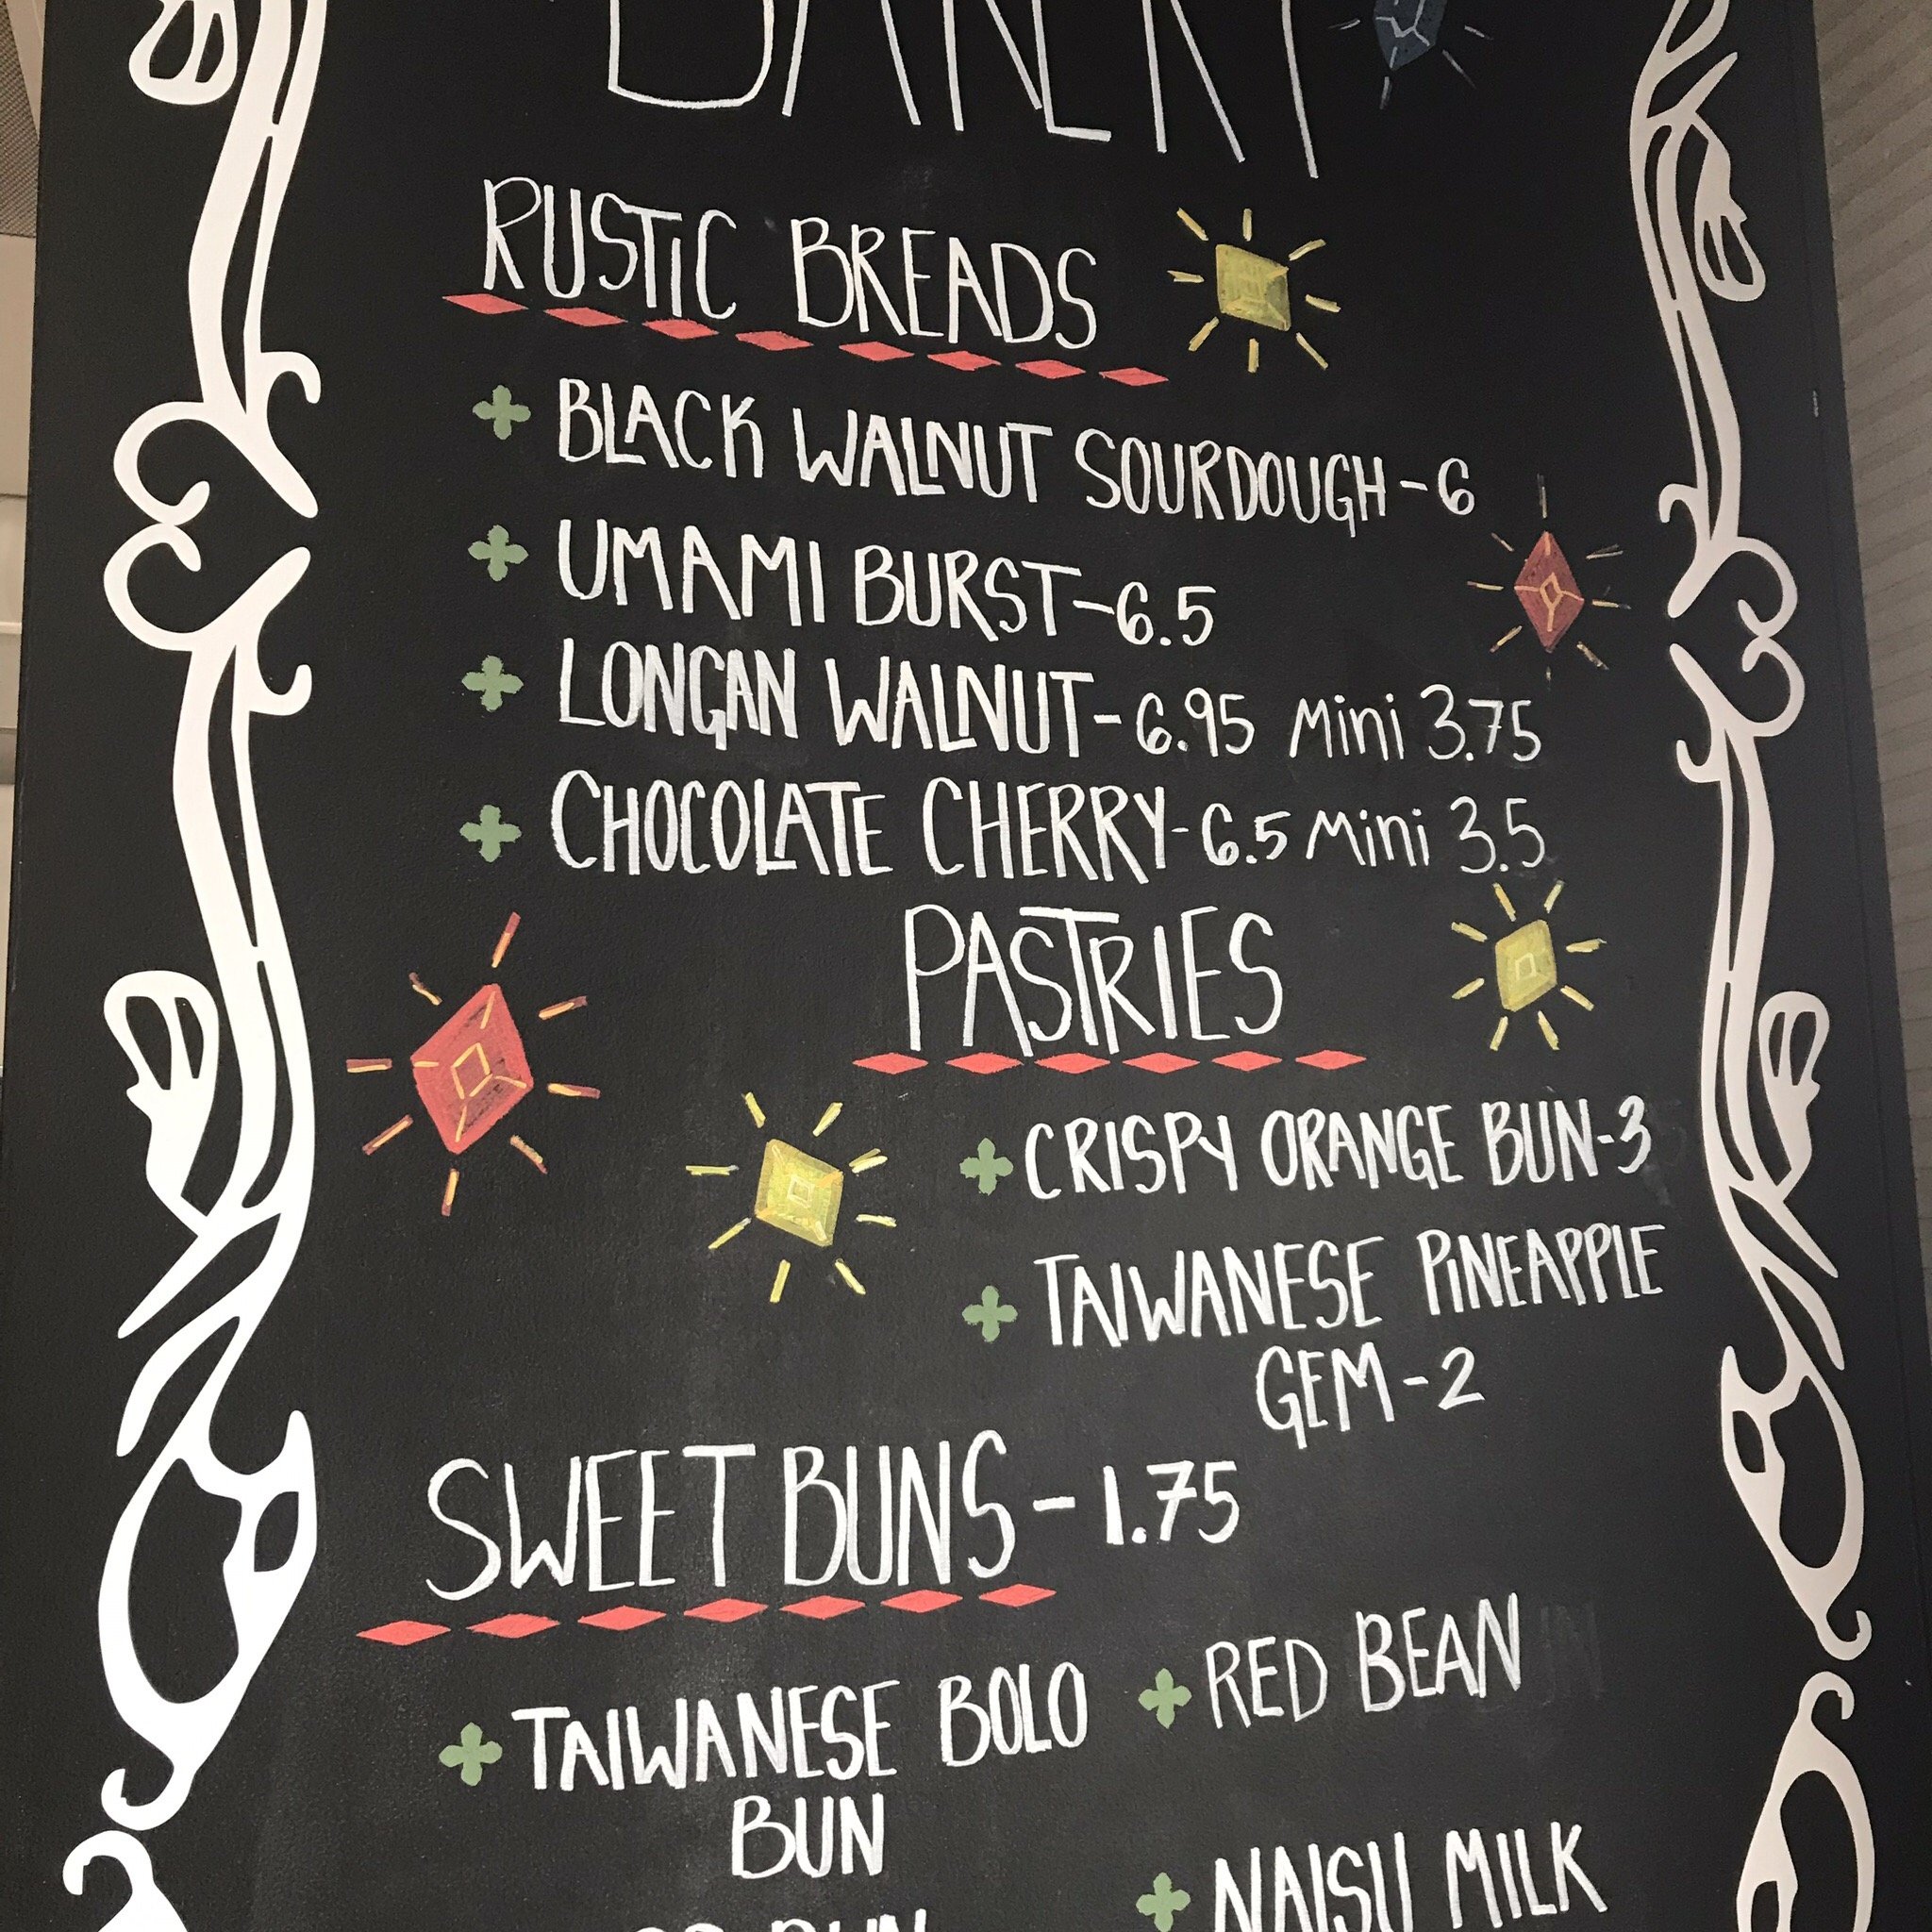 BAKERY
RUSTIC BREADS
BLACK WALNUT SOURDOUGH - 6
UMAMI BURST - 6.5
LONGAN WALNUT - 6.95 Mini 3.75
CHOCOLATE CHERRY - 6.5 Mini 3.5
PASTRIES
CRISPY ORANGE BUN - 3
TAIWANESE PINEAPPLE
GEM - 2
SWEET BUNS - 1.75
TAIWANESE BOLO
BUN
RED BEAN
NAISU MILK
BUN